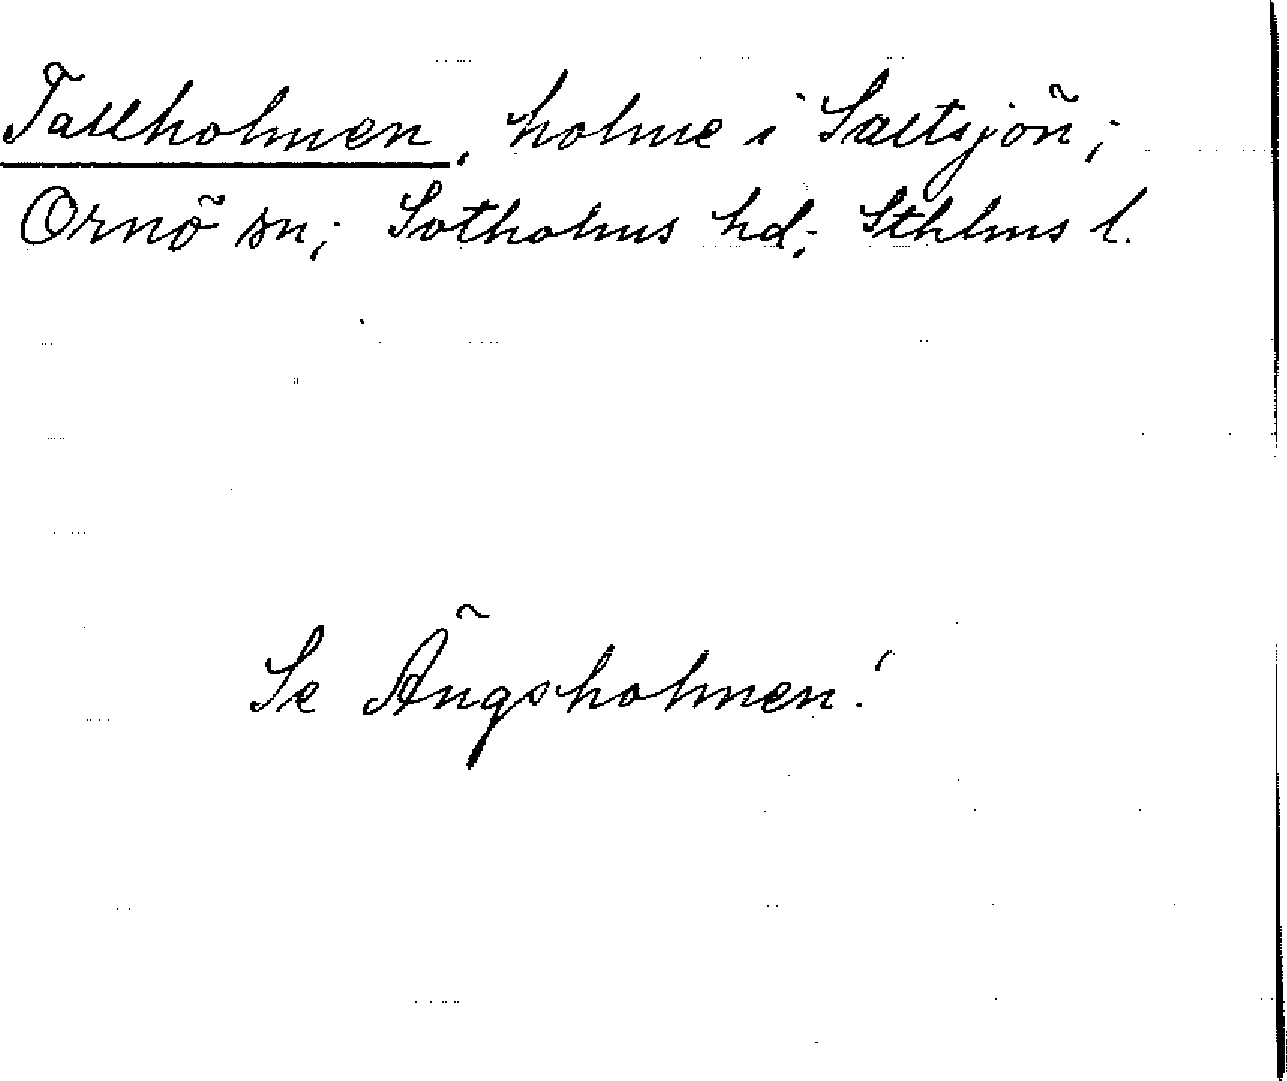 Tallholmen, holme i Saltsjön;
Ornö sn; Sotholms hd; Sthlms l.
Se Ängsholmen!